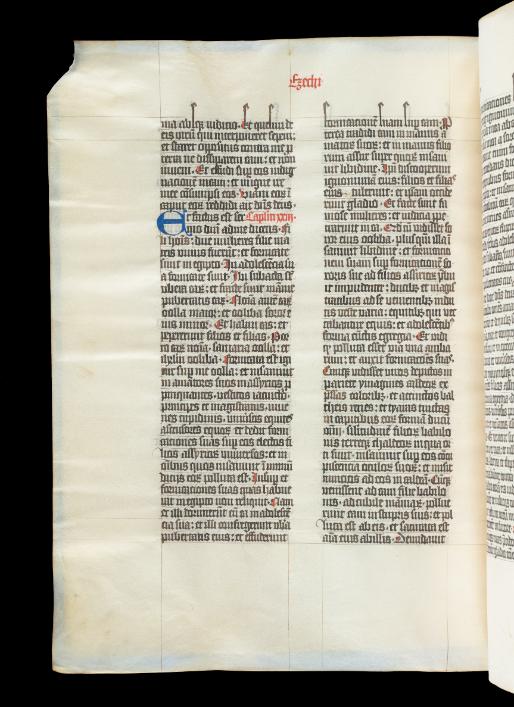 Ezechi
ma absqꝫ iudicio. Et quesiui de
eis virū qui interponeret sepem:
et staret oppositus contra me p
terra ne dissiparem eam: et non
inueni. Et effudi sup eos indig
nationē meam: et in igne ire
mee cōsumpsi eos. Viam eoꝝ ī
caput eoꝝ reddidi ait dn̄s deus.
Et factus est ser Capitlm xxiij.
mo dn̄i ad me dicens. Fi
li hoīs: due mulieres filie ma
tris vnius fuerūt: et fornicate
sunt in egipto. In adolescētia su
a fornicate sunt. Ibi subacta sūt
vbera eaꝝ: et fracte sunt māme
pubertatis eaꝝ. Noīa autē eaꝝ
oolla maior: et ooliba soror e
ius minor. Et habui eas: et
pepererunt filios et filias. Por
ro eaꝝ noīa. samaria oolla: et
iherlm ooliba. Fornicata est igi
tur sup me oolla: et insaniuit
in amatores suos in assyrios p
pinquantes. vestitos iacincto.
principes et magistratus. iuue
nes cupidinis. vniūsos equites
ascensores equoꝝ. et dedit forni
cationes suas sup eos electos fi
lios assyrioꝝ vniuersos: et in
oībus quos insaniuit
eoꝝ polluta est. Insup et
fornicationes suas quas habue
rat in egipto nō reliquit. Nam
et illi dormierūt cū ea in adolescē
cia sua: et illi confregerunt vbera
pubertatis eius: et effuderunt
fornicationē suam sup eam. P
terea tradidi eam in manus a
matoꝝ suoꝝ: et in manus filio
rum assur super quoꝝ insani
uit libidine. Ipsi discooperierūt
ignominiā eius: filios et filias
eius tulerunt: et ipsam occide
runt gladio. Et facte sunt fa
mose mulieres: et iudicia ppe
trarunt in ea. Qd cū vidisset so
ror eius ooliba. plusquā illa ī
saniuit libidine: et fornicatio
nem suam sup fornicationē so
roris sue ad filios assyrioꝝ pbu
it impudenter: ducibꝫ et magis
tratibus ad se venientibꝫ indu
tis veste varia: equitibꝫ qui vec
tabantur equis: et adolescētibꝫ
forma cūctis egregia. Et vidi
qꝫ polluta esset via vna ambaꝝ
rum: et auxit fornicationes suas.
Cumqꝫ vidisset viros depictos in
pariete ymagines caldeoꝝ ex
p̄ssas coloribꝫ. et accinctos bal
theis renes: et tyaras tinctas
in capitibus eoꝝ formā ducū
oīm. similitudinē filioꝝ babilo
nis terreqꝫ chaldeoꝝ in qua or
ti sunt. insaniuit sup eos cōcu
piscentia oculoꝝ suoꝝ: et misit
nuncios ad eos in caldeā. Cūqꝫ
venissent ad eam filii babilo
nis. ad cubile māmaꝝ. pollue
runt eam in stupris suis: et pol
luta est ab eis. et saturata est
aīa eius ab illis. Denudauit